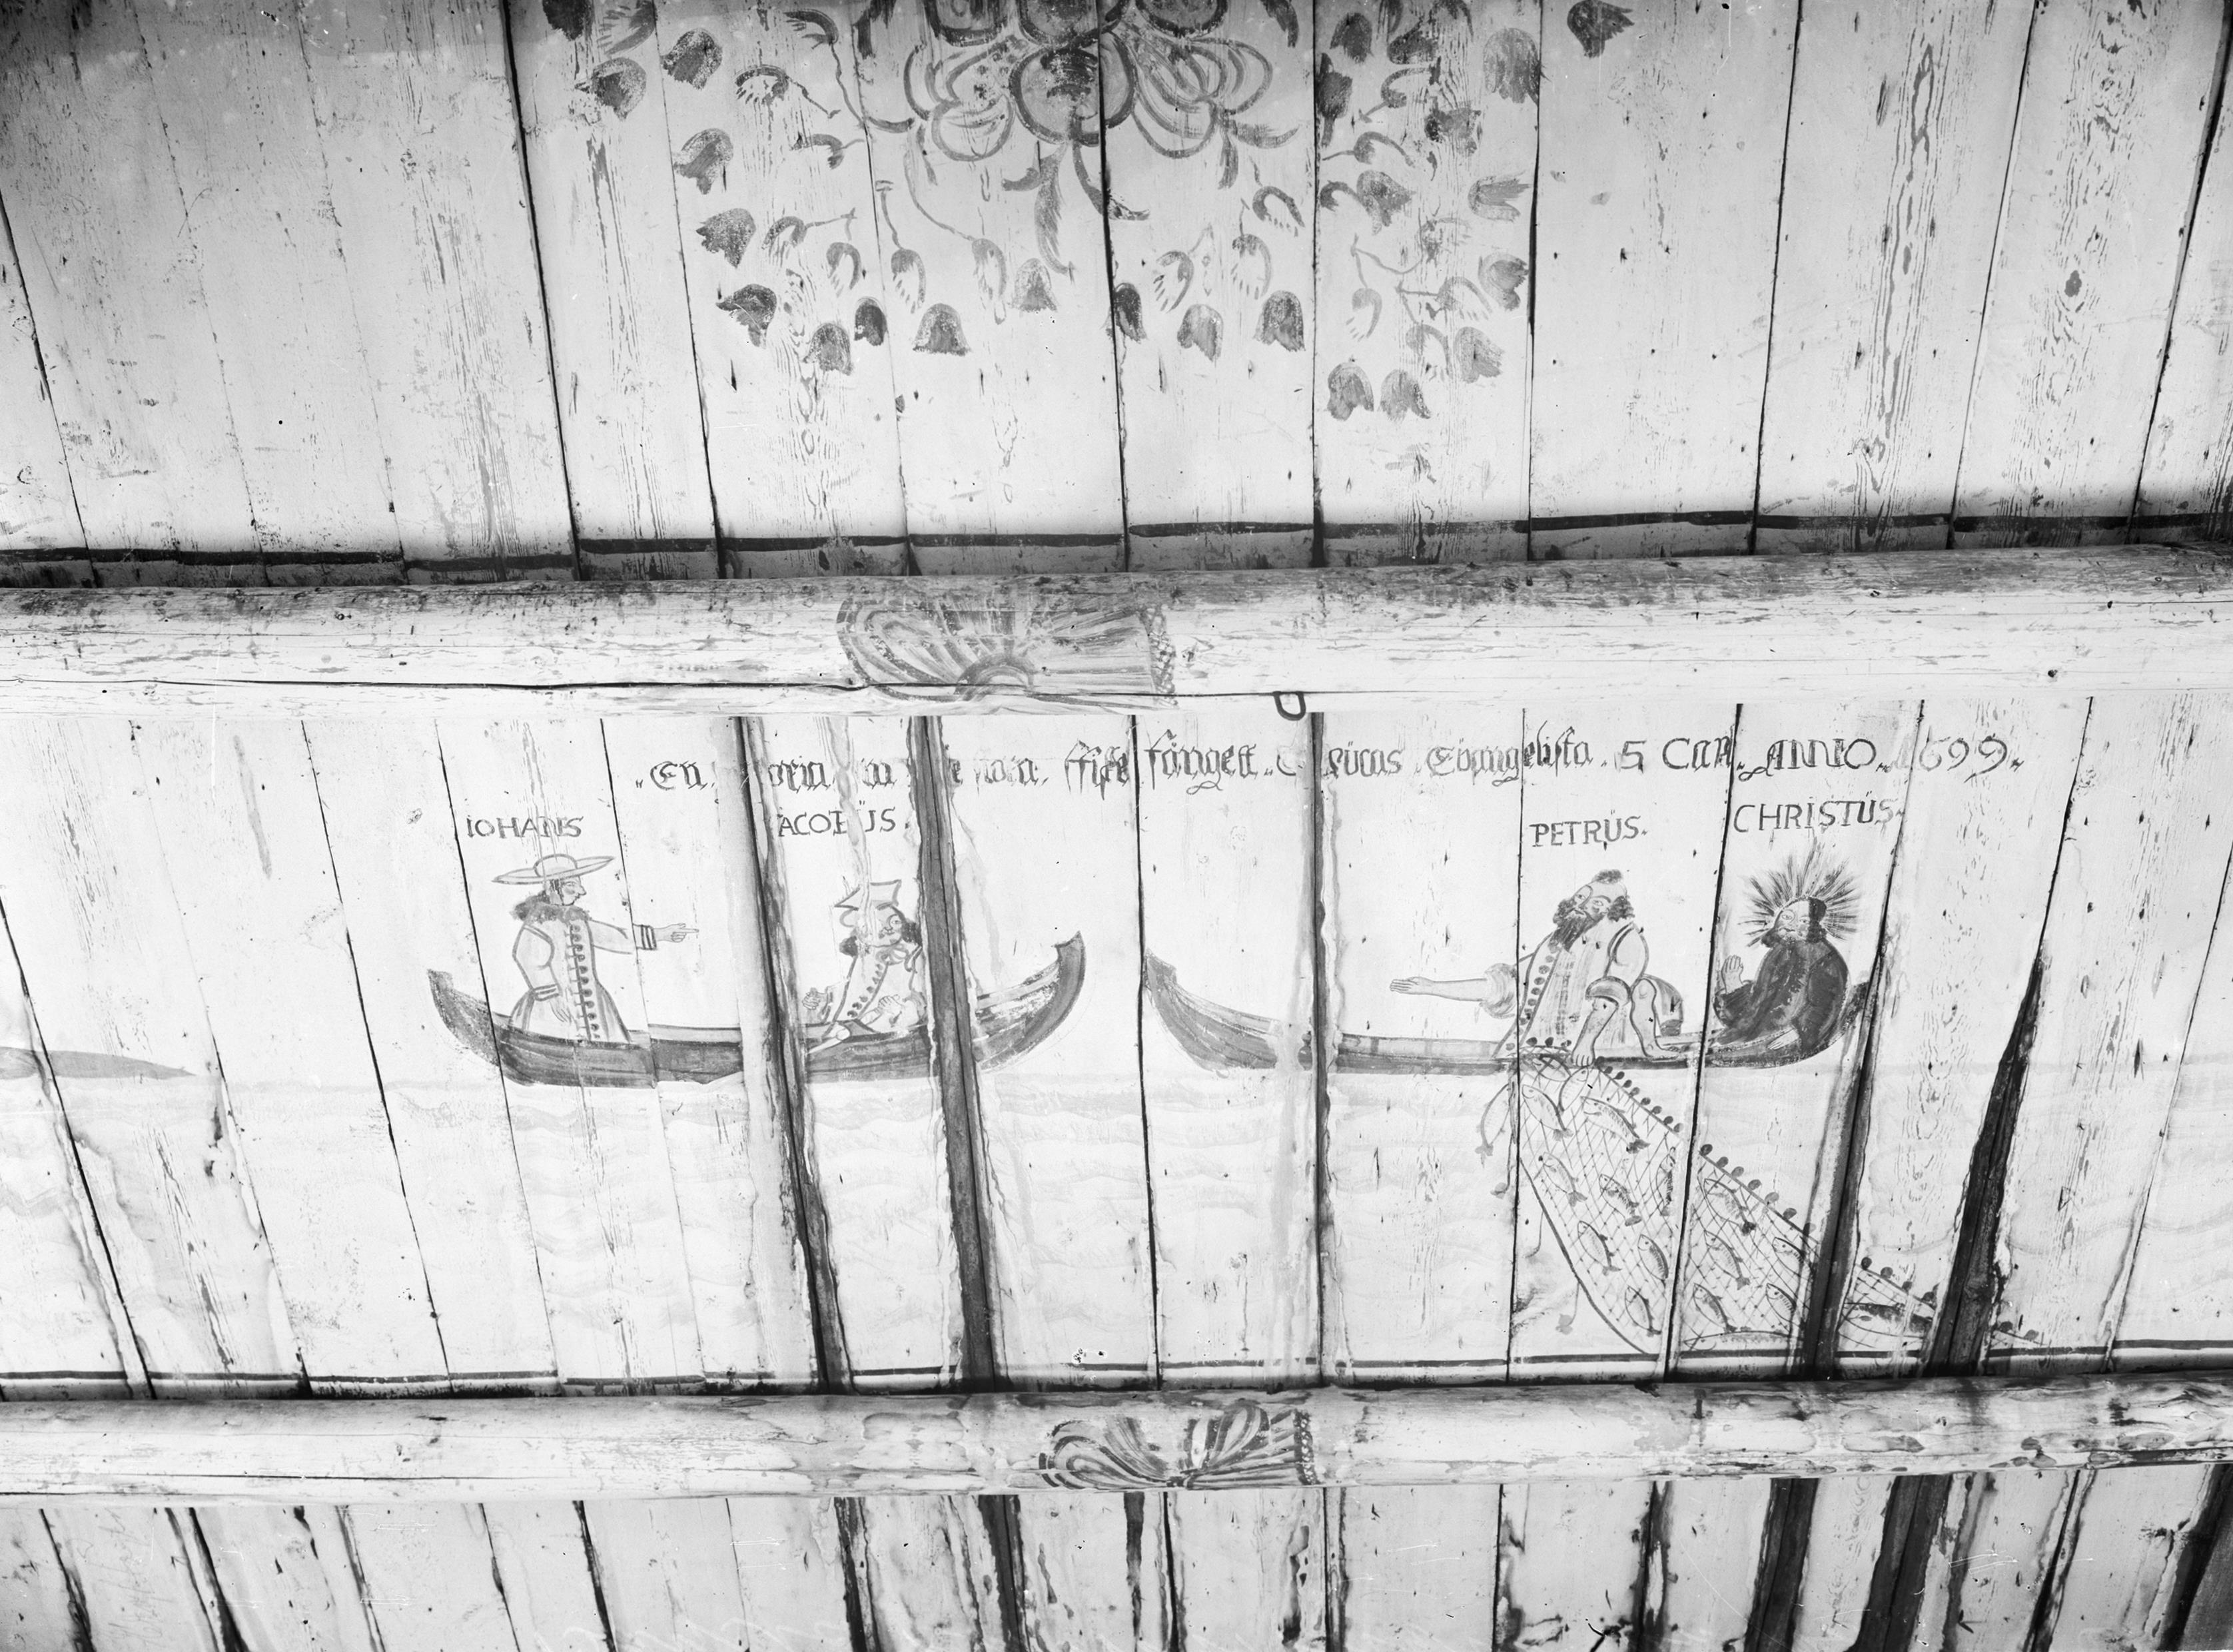 En fiske fångett Lucas Evangelista. 5 CAP. ANNO. 1699.
IOHANS JACOBÜS. PETRÜS. CHRISTÜS.